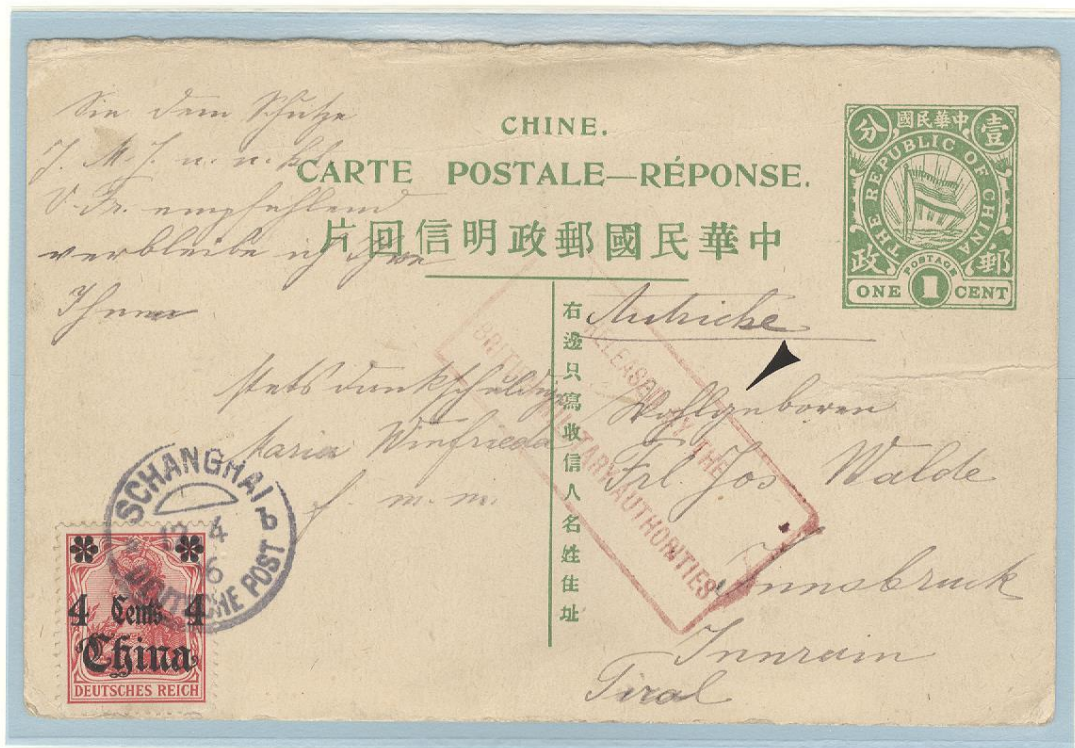 CHINE.
CARTE POSTALE—RÉPONSE.
片回信明政郵國民華中
分 國民華中 壹
THE REPUBLIC OF CHINA
政 POSTAGE 郵
ONE 1 CENT
Sin dem Schutze
J. M. J. u.
V. Fr. empfehlend
verbleibe ich Ihre
Ihnen
stets dankschuldige
Maria Winfrieda
f. m. m.
右邊只寫收信人名姓住址
Autriche
Wohlgeboren
Frl. Jos Walde
Innsbruck
Innrain
Tirol
RELEASED BY THE
BRITISH MILITARY AUTHORITIES
SCHANGHAI
b
4
6
DEUTSCHE POST
4 Cents 4
China
DEUTSCHES REICH